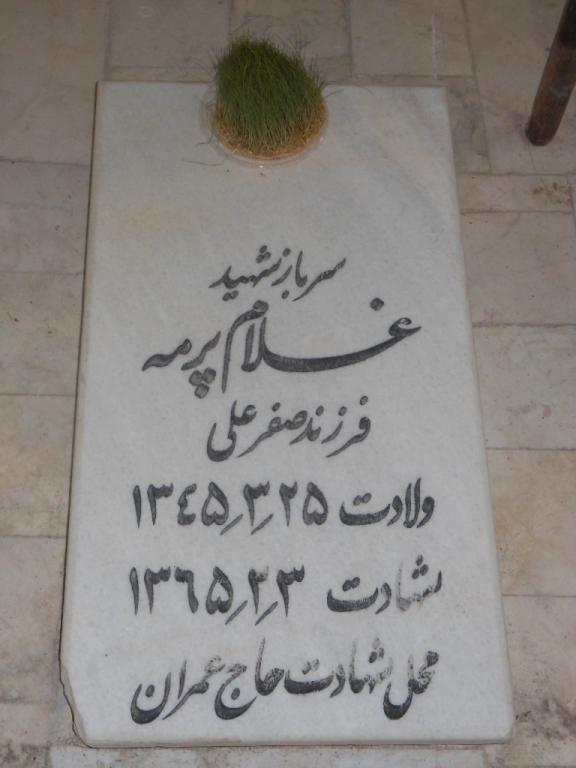 سرباز شهید
غلام پرمه
فرزند صفر علی
ولادت ۲۵ر۳ر۱۳٤۵
شهادت ۲۳ر۲ر۱۳٦۵
محل شهادت حاج عمران